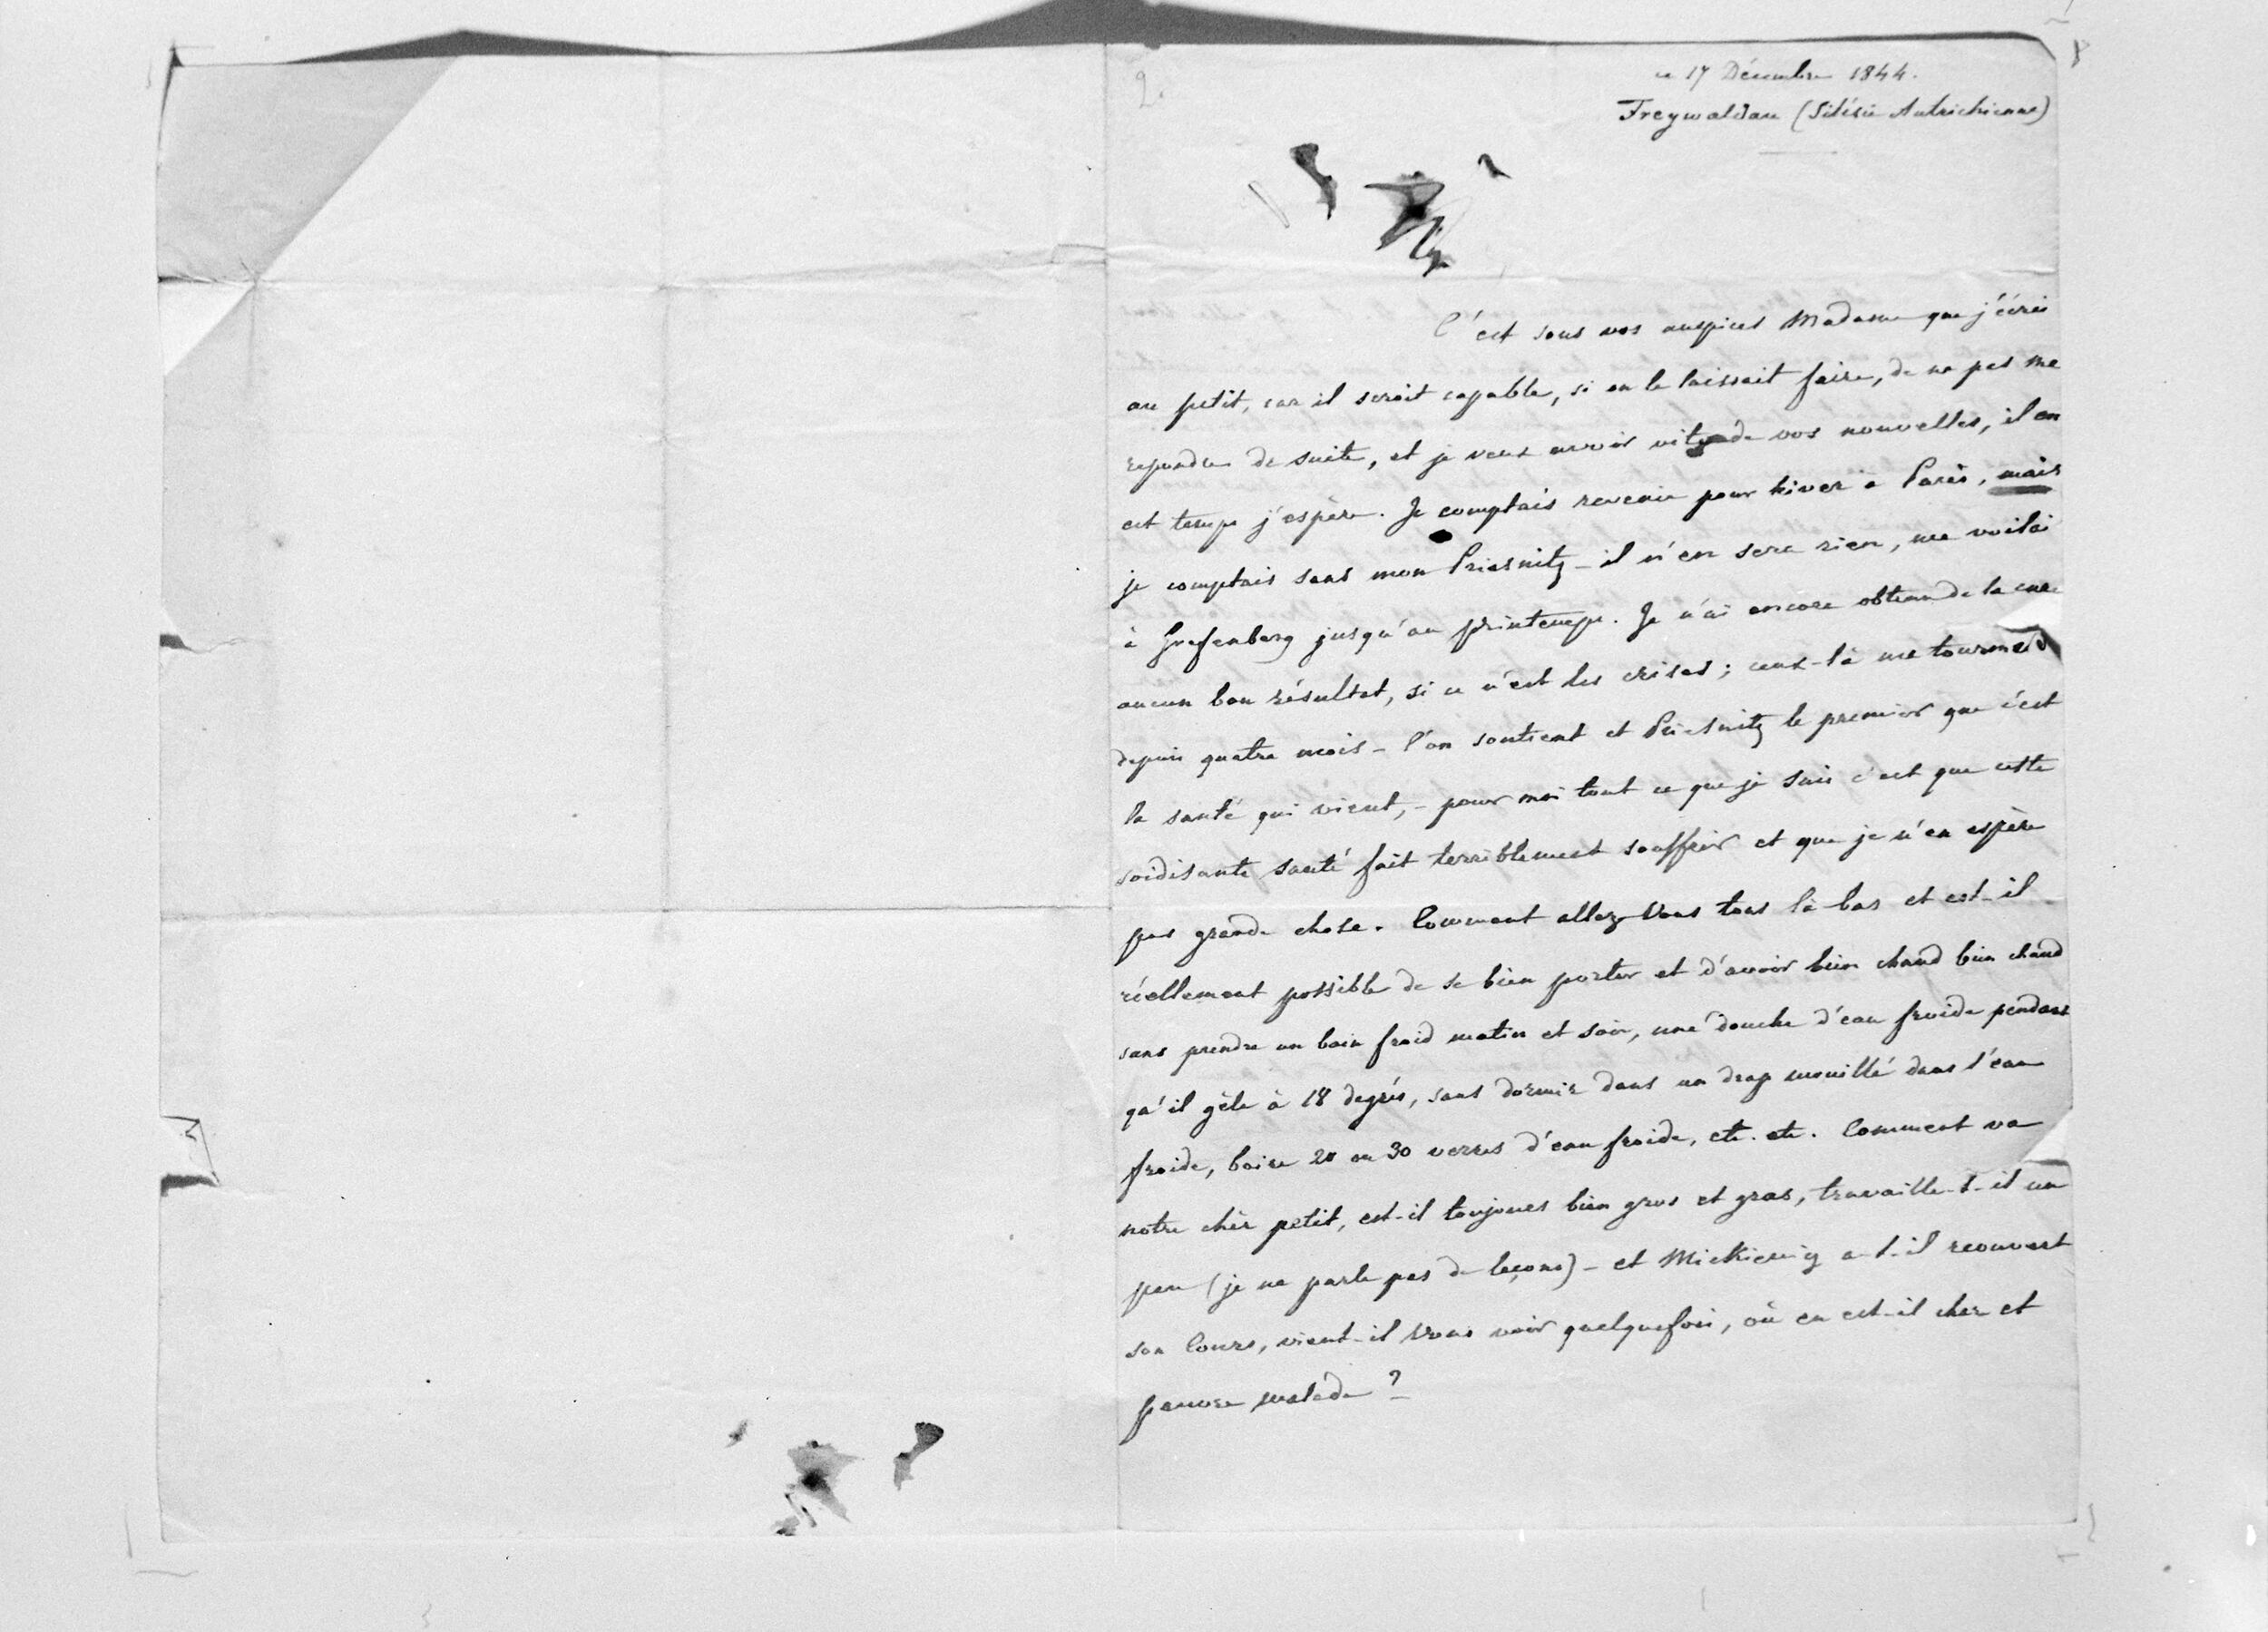 2.
ce 17 Décembre 1844.
Freywaldau (Silésie Autrichienne)
C'est sous vos auspices Madame que j'écris
au petit, car il serait capable, si on le laissait faire, de ne pas me
repondre de suite, et je veux avoir vite de vos nouvelles, il en
est temps j'espère. Je comptais revenir pour hiver à Paris, mais
je comptais sans mon Priesnitz – il n'en sera rien, me voilà
à Grefenberg jusqu'au printemps. Je n'ai encore obtenu de la cure
aucun bon résultat, si ce n'est les crises ; ceux-là me tourmen
depuis quatre mois – l'on soutient et Priesnitz le premier que c'est
la santé qui vient, – pour moi tout ce que je sais c'est que cette
soidisante santé fait terriblement souffrir et que je n'en espère
pas grande chose. Comment allez-Vous tous là-bas et est-il
réellement possible de se bien porter et d'avoir bien chaud bien chaud
sans prendre un bain froid matin et soir, une douche d'eau froide pendant
qu'il gèle à 18 degrés, sans dormir dans un drap mouillé dans l'eau
froide, boire 20 ou 30 verres d'eau froide, etc. etc. Comment va
notre chèr petit, est-il toujours bien gros et gras, travaille-t-il un
peu (je ne parle pas de leçons) – et Mickiewicz a-t-il reouvert
son Cours, vient-il Vous voir quelquefois, où en est-il cher et
pauvre malade ?